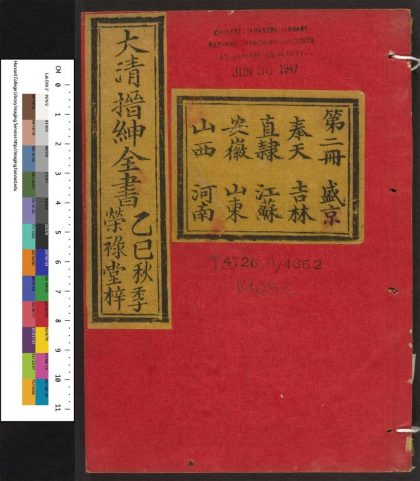 大清搢紳全書
乙巳秋季
榮祿堂梓
第二冊 盛京
奉天 吉林
直隸 江蘇
安徽 山東
山西 河南
CHINESE-JAPANESE LIBRARY
HARVARD-YENCHING INSTITUTE
AT HARVARD UNIVERSITY
JUN 30 1947
Harvard College Library Imaging Services
CM 0 1 2 3 4 5 6 7 8 9 10 11